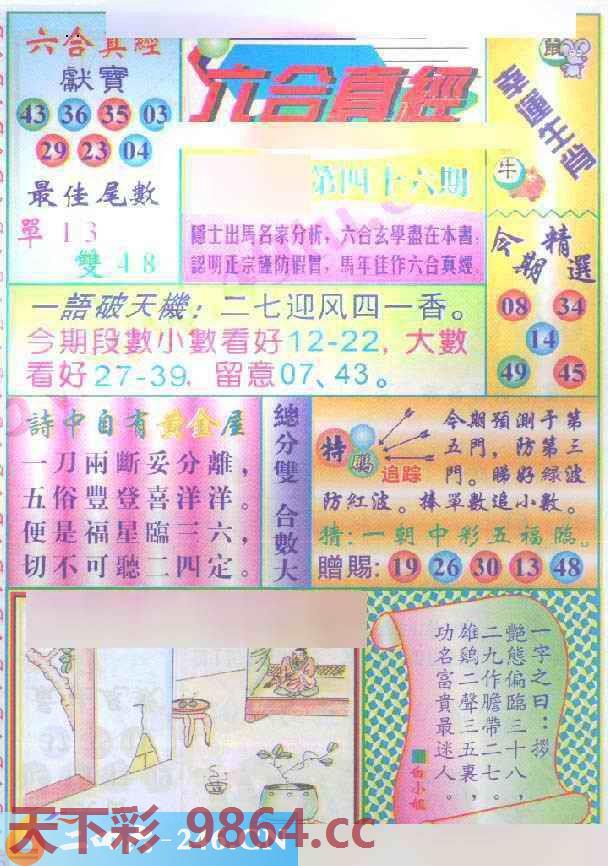 六合真經
獻寶
43 36 35 03
29 23 04
最佳尾數
單 1 3
雙 4 8
六合真經
第四十六期
隱士出馬名家分析，六合玄學盡在本書；
認明正宗謹防假冒，馬年佳作六合真經。
鼠
幸運生肖
牛
今期精選
08 34
14
49 45
一語破天機：二七迎风四一香。
今期段數小數看好12-22, 大數
看好27-39, 留意07、43。
詩中自有黃金屋
一刀兩斷妥分離，
五俗豐登喜洋洋。
便是福星臨三六，
切不可聽二四定。
總分雙 合數大
特
追踪
今期預測于第
五門，防第三
門。睇好綠波
防紅波。棒單數追小數。
猜:一朝中彩五福臨。
贈賜: 19 26 30 13 48
一字之曰：
艷態偏臨三十八，
二九作膽帶二七。
雄鷄二聲三五裏，
功名富貴最迷人。
白小姐
天下彩 9864.cc